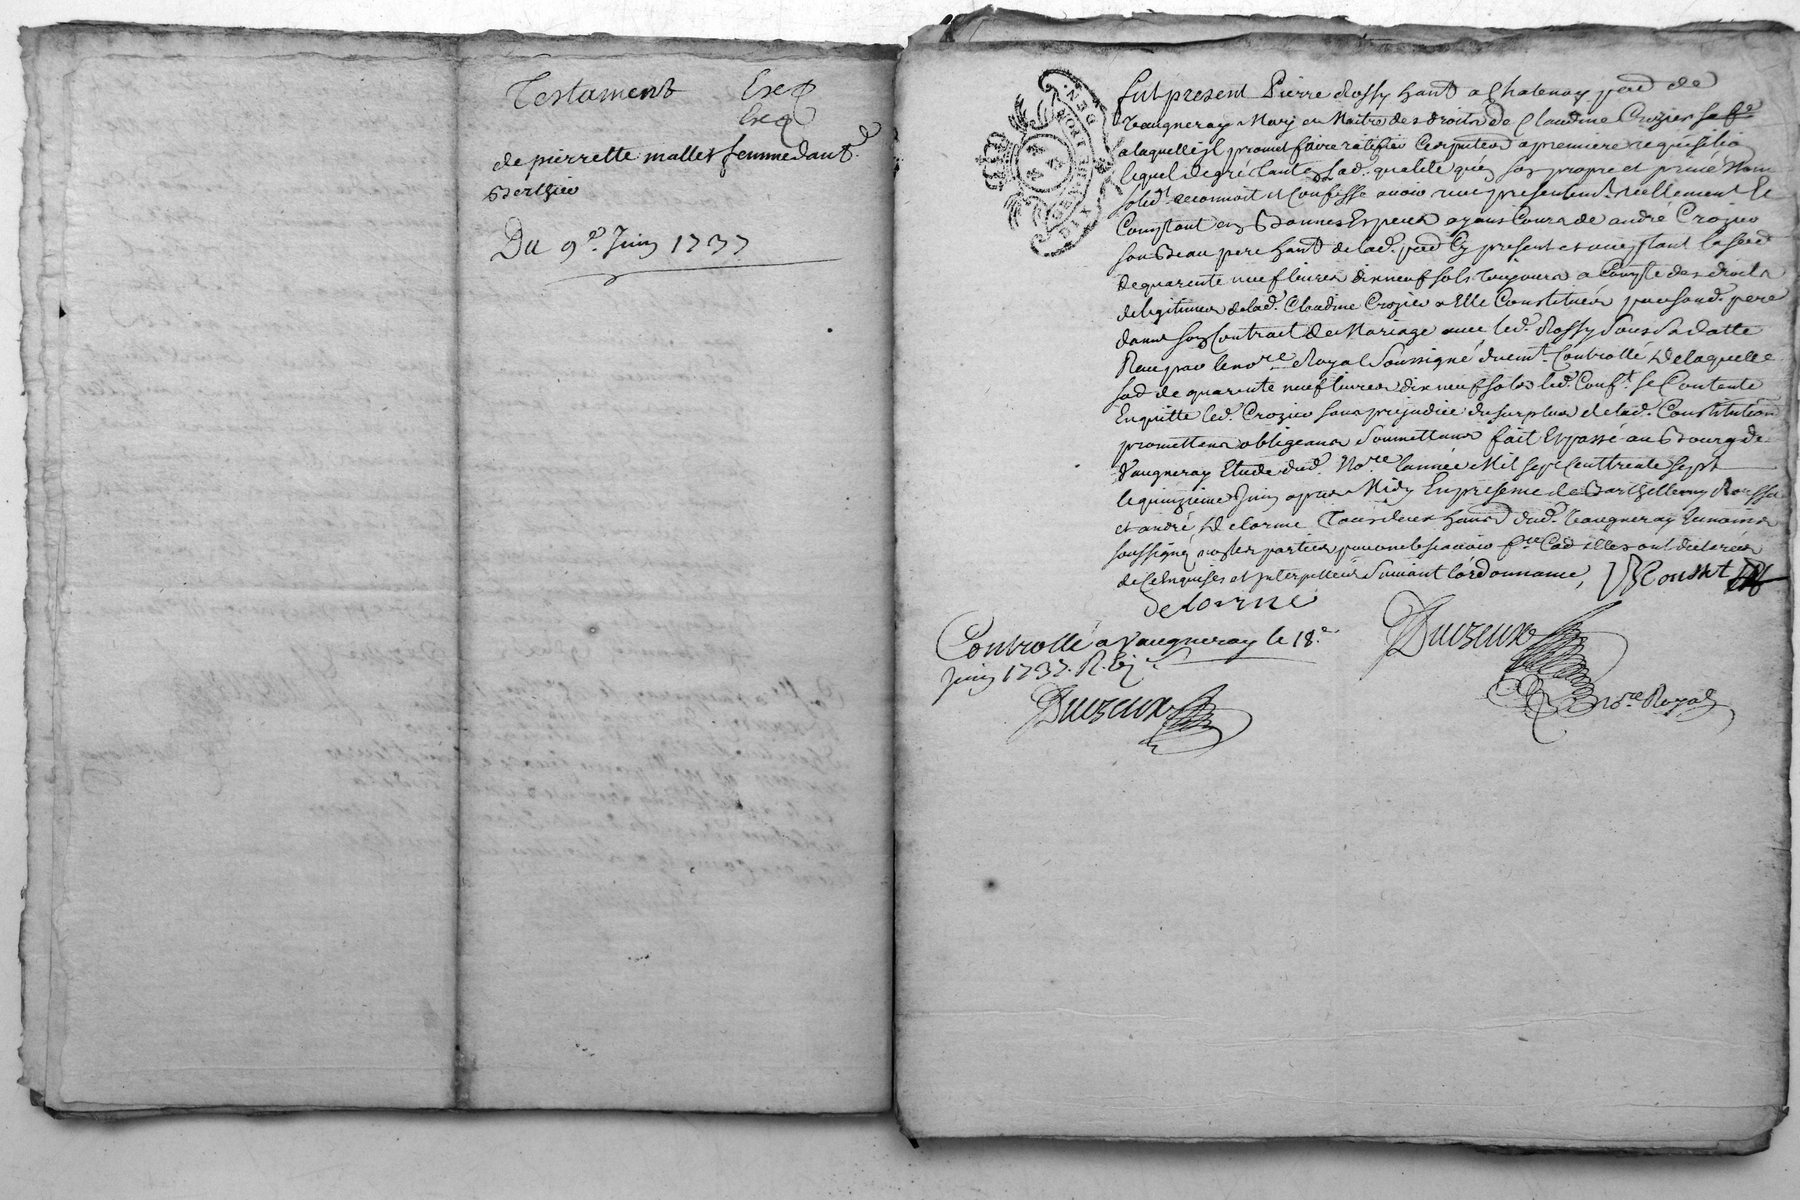 Testament Exp
Exp
de pierrette mallet femme dant.e
Berthier
Du 9.e Juin 1737
GEN. DIX DEN.
fut present Pierre Rossy habt a Chatenay parr de
Vaugneray Mary et Maitre des droits de Claudine Crozier sa fe
a laquelle il promet faire ratifier a premiere requisition
lequel de gré tant en lad. qualité qu'en son propre et privé Nom
solid. reconnoit et Confesse avoir receu presentemt reellement et
Comptant en Bonnes Especes ayans Cours de andré Crozier
son Beau pere habt de lad. parr Cy present et acceptant la somme
de quarente neuf livres dix neuf sols Toujours a Compte des droits
de legitimes de lad. Claudine Crozier a Elle Constitués par sond. pere
dans son Contrat de Mariage avec led. Rossy Sous Sa datte
Receu par le no.re Royal Soussigné duemt. Controllé, de laquelle
so.e de quarente neuf livres dix neuf sols led. Conft. se Contente
En quitte led. Crozier sans prejudice du surplus de lad. Constitution
promettans obligeans soumettans fait et passé au Bourg de
Vaugneray Etude dud. No.re l'année Mil sept Cent trente sept
le quinzieme Juin apres Midy En presence de Barthellemy Rousset
et andré Delorme Tous deux habts dud. Vaugneray temoins
soussignés non les parties pour ne le scavoir fre Co.e elles ont declarées
de Ce Enquises et Interpellées Suivant l'ordonnance, B Rousset
delorme
Controllé a Vaugneray le 18.e
Juin 1737. R.
no.re Royal